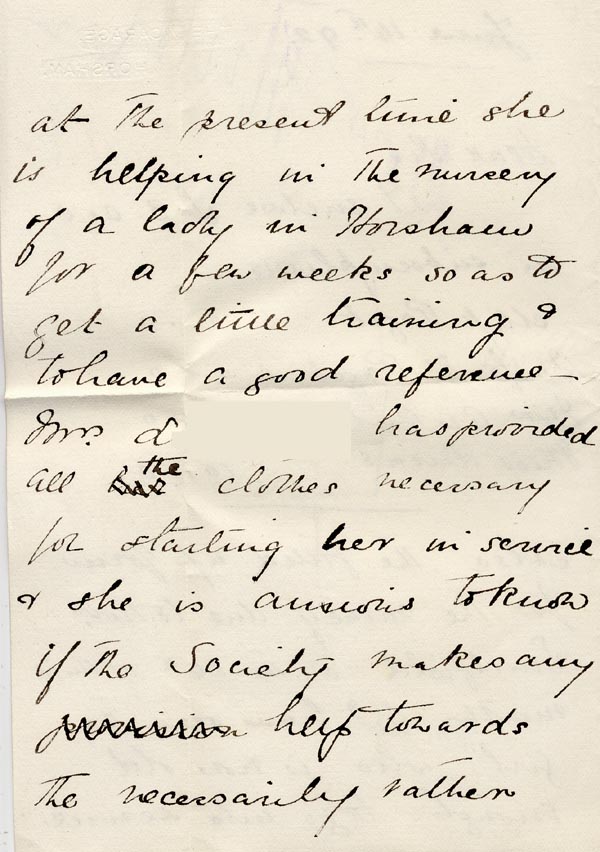 at the present time she
is helping in the nursery
of a lady in Horsham
for a few weeks so as to
get a little training &
to have a good reference –
Mrs. d has provided
all the clothes necessary
for starting her in service
& she is anxious to know
if the Society makes any
help towards
the necessarily rather